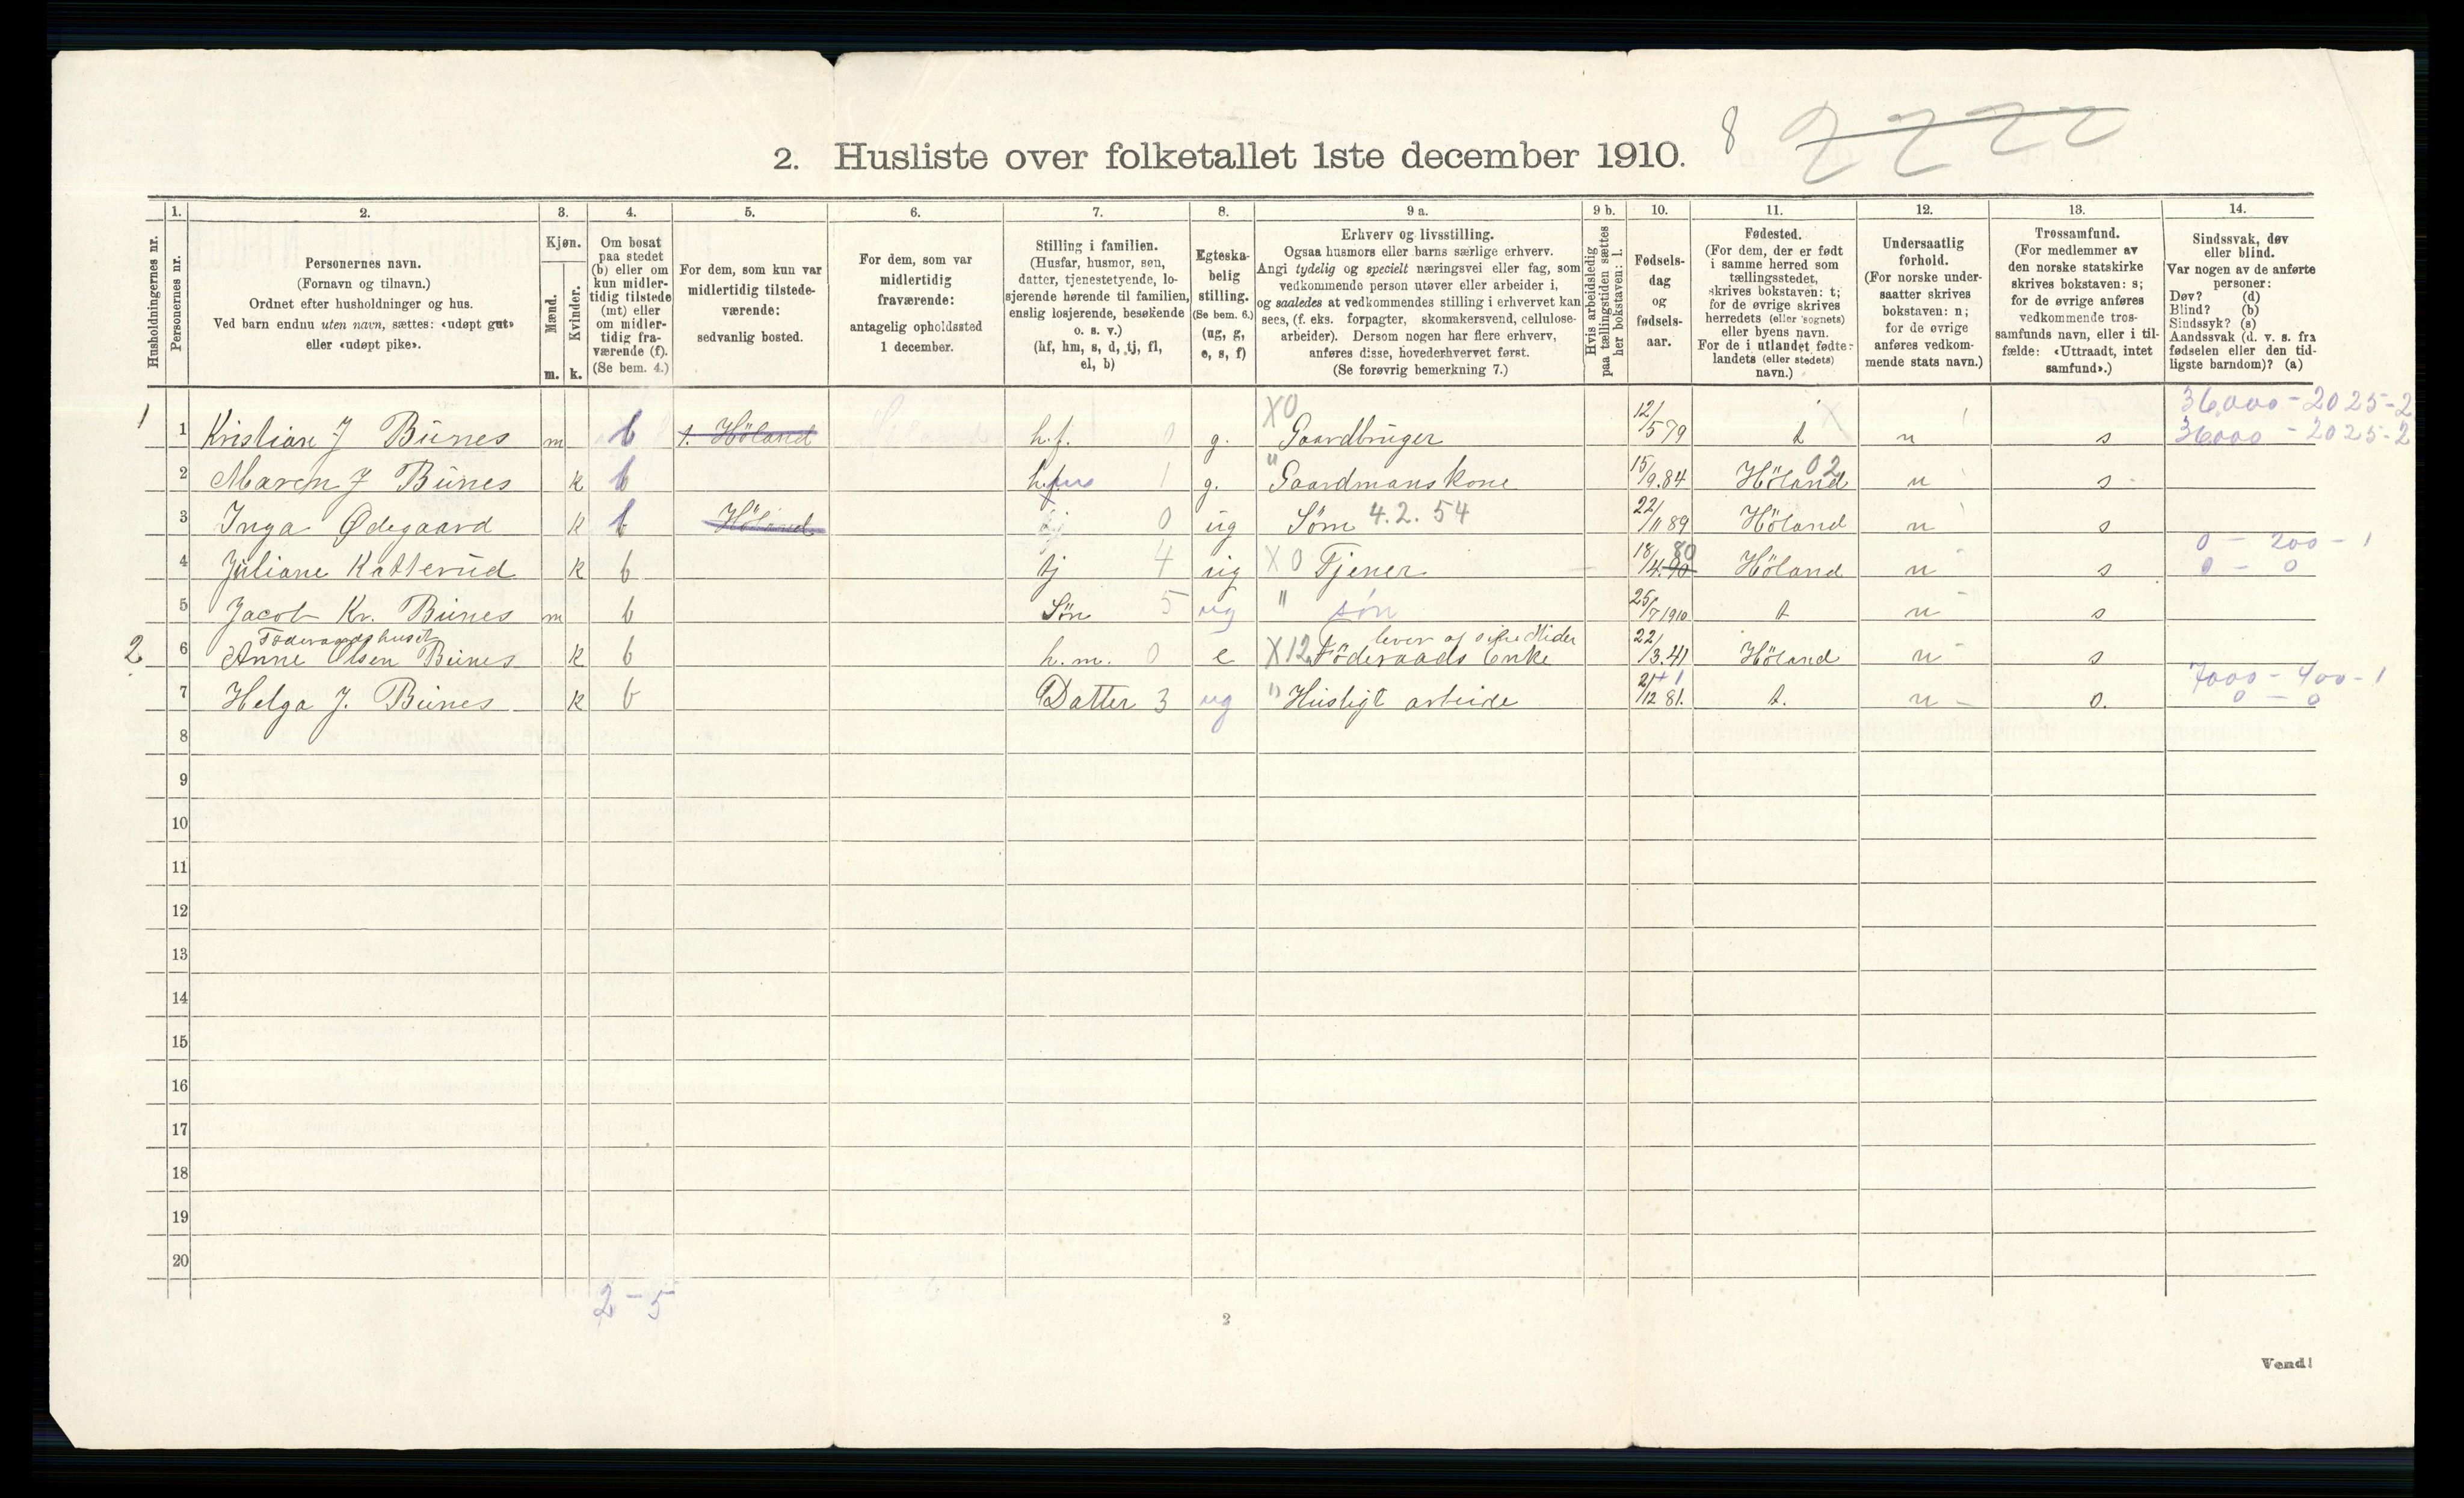 2. Husliste over folketallet 1ste december 1910.
8
2722
1. 2. 3. 4. 5. 6. 7. 8. 9 a. 9 b. 10. 11. 12. 13. 14.
Husholdningernes nr.
Personernes nr.
Personernes navn.
(Fornavn og tilnavn.)
Ordnet efter husholdninger og hus.
Ved barn endnu uten navn, sættes: «udøpt gut»
eller «udøpt pike».
Kjøn.
Mænd.
Kvinder.
m. k.
Om bosat
paa stedet
(b) eller om
kun midler-
tidig tilstede
(mt) eller
om midler-
tidig fra-
værende (f).
(Se bem. 4.)
For dem, som kun var
midlertidig tilstede-
værende:
sedvanlig bosted.
For dem, som var
midlertidig
fraværende:
antagelig opholdssted
1 december.
Stilling i familien.
(Husfar, husmor, søn,
datter, tjenestetyende, lo-
sjerende hørende til familien,
enslig losjerende, besøkende
o. s. v.)
(hf, hm, s, d, tj, fl,
el, b)
Egteska-
belig
stilling.
(Se bem. 6.)
(ug, g,
e, s, f)
Erhverv og livsstilling.
Ogsaa husmors eller barns særlige erhverv.
Angi tydelig og specielt næringsvei eller fag, som
vedkommende person utøver eller arbeider i,
og saaledes at vedkommendes stilling i erhvervet kan
sees, (f. eks. forpagter, skomakersvend, cellulose-
arbeider). Dersom nogen har flere erhverv,
anføres disse, hovederhvervet først.
(Se forøvrig bemerkning 7.)
Hvis arbeidsledig
paa tællingstiden sættes
her bokstaven: l.
Fødsels-
dag
og
fødsels-
aar.
Fødested.
(For dem, der er født
i samme herred som
tællingsstedet,
skrives bokstaven: t;
for de øvrige skrives
herredets (eller sognets)
eller byens navn.
For de i utlandet fødte:
landets (eller stedets)
navn.)
Undersaatlig
forhold.
(For norske under-
saatter skrives
bokstaven: n;
for de øvrige
anføres vedkom-
mende stats navn.)
Trossamfund.
(For medlemmer av
den norske statskirke
skrives bokstaven: s;
for de øvrige anføres
vedkommende tros-
samfunds navn, eller i til-
fælde: «Uttraadt, intet
samfund».)
Sindssvak, døv
eller blind.
Var nogen av de anførte
personer:
Døv? (d)
Blind? (b)
Sindssyk? (s)
Aandssvak (d. v. s. fra
fødselen eller den tid-
ligste barndom)? (a)
36,000 - 2025-2
1 1 Kristian J Bünes m b t. Höland h.f. 0 g. X0 Gaardbruger 12/5 79 t n s 36000 - 2025-2
2 Maren J Bünes k b h.frue 1 g. " Gaardmanskone 15/9.84 Höland 02 n s
3 Inga Ødegaard k b Höland tj 0 ug Søm 4.2.54 22/11 89 Höland n s
0 - 200 - 1
4 Juliane Katterud k b tj 4 ug X0 Tjener 18/4.90 80 Höland n s 0 - 0
5 Jacob Kr. Bünes m b Søn 5 ug " søn 25/7 1910 t n s
Föderaadshuset lever af sine Midler
2 6 Anne Olsen Bünes k b h.m. 0 e X12 Föderaads Enke 22/3.41 Höland n s
7000 - 400 - 1
7 Helga J. Bünes k b Datter 3 ug " Husligt arbeide 21/12 81. t. n o. 0 - 0
8
9
10
11
12
13
14
15
16
17
18
19
20
2 - 5
2
Vend!